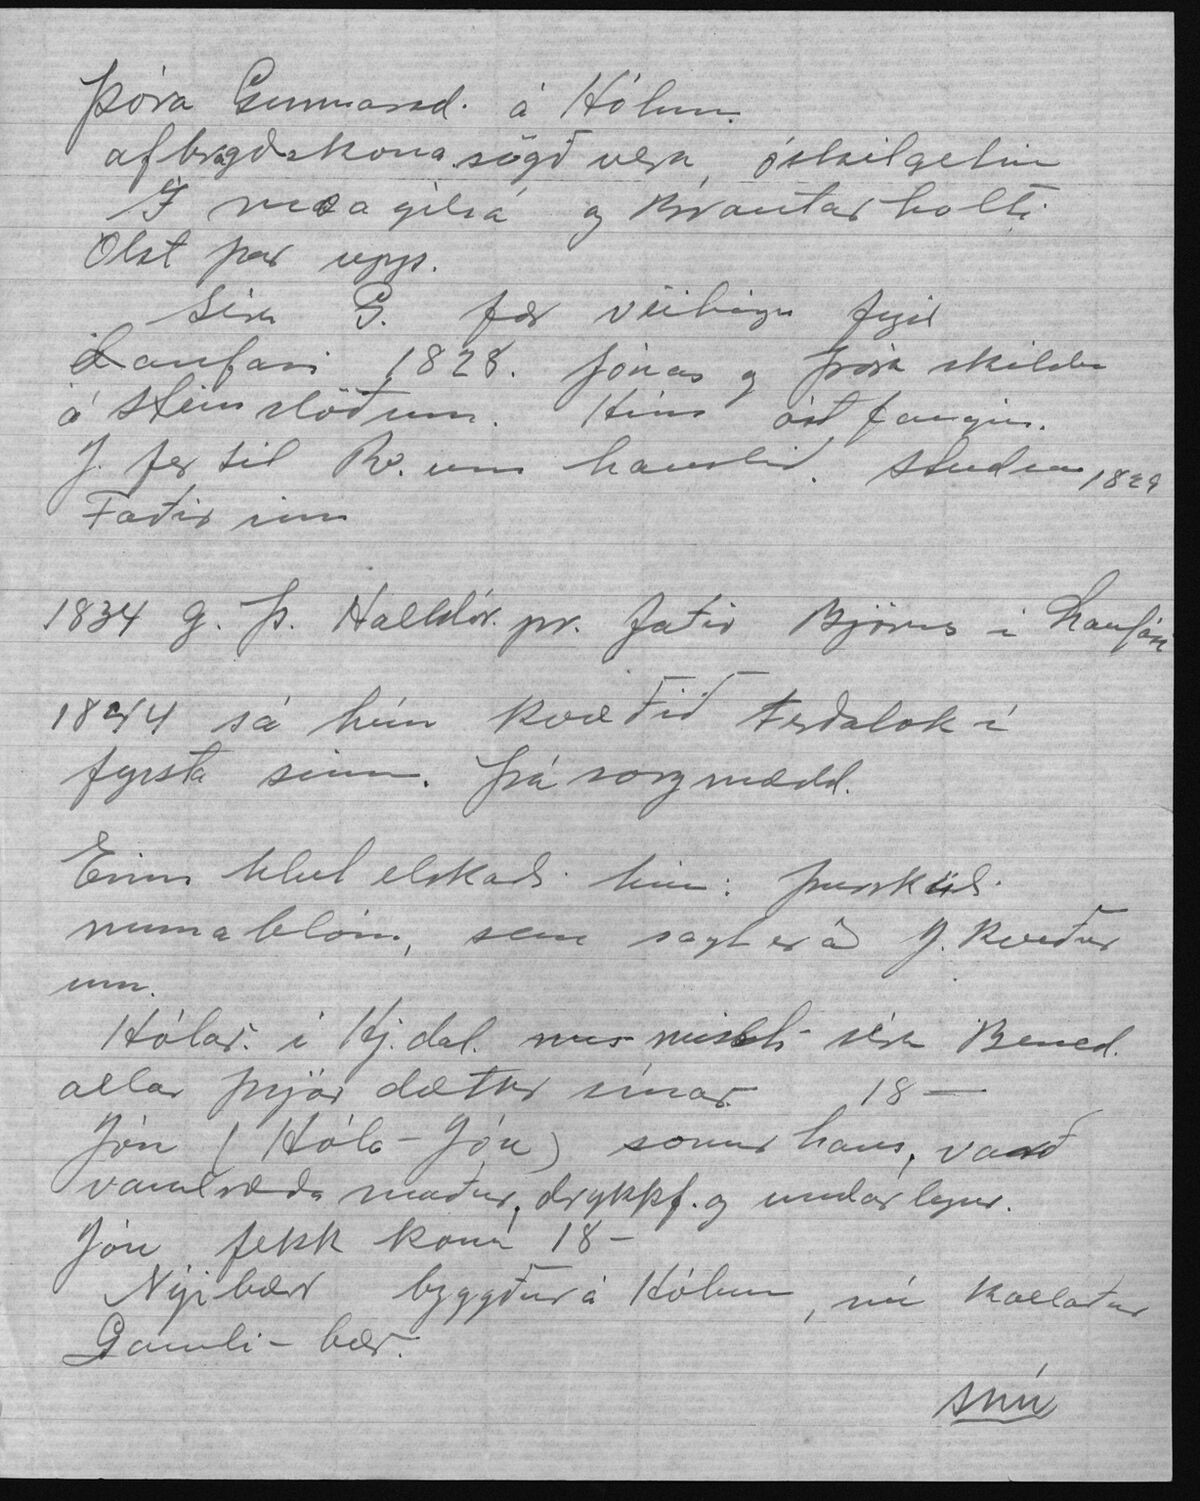 Þóra Gunnarsd. á Hólum.
afbragðskona sögð vera, óskilgetin
Í og Brautarholti
Ólst þar upp.
Séra G. fær veitingu fyrir
Laufási 1828. Jónas og Þóra skildu
á Steinsstöðum. Hún ástfangin.
J. fer til Rv. um haustið. Student 1829
Faðir inn
1834 g. Þ. Halldór. pr. faðir Björns í Laufási
1844 sá hún kvæðið Ferðalok í
fyrsta sinn. Þá sorgmædd.
Einn hlut elskaði hún: þurrkuð
munablóm, sem sagt er að J. kveður
um.
Hólar. í Hj.dal. missti séra Bened.
allar þrjár dætur sínar 18 —
Jón (Hóla-Jón) sonur hans, varð
vandræðamaður, drykkf. og undarlegur.
Jón fekk konu 18 –
Nýibær byggður á Hólum, nú kallaður
Gamli-bær.
snú